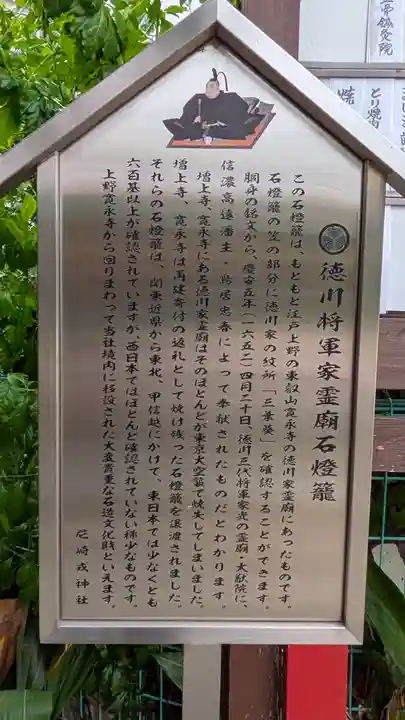 徳川将軍家霊廟石燈籠
この石燈籠は、もともと江戸上野の東叡山寛永寺の徳川家霊廟にあったものです。
石燈籠の笠の部分に徳川家の紋所「三葉葵」を確認することができます。
胴身の銘文から、慶安五年(一六五二)四月二十日、徳川三代将軍家光の霊廟・大猷院に、
信濃高遠藩主・鳥居忠春によって奉献されたものだとわかります。
増上寺、寛永寺にある徳川家霊廟はそのほとんどが東京大空襲で焼失してしまいました。
増上寺、寛永寺は再建寄付の返礼として焼け残った石燈籠を譲渡されました。
それらの石燈籠は、関東近県から東北、甲信越にかけて、東日本では少なくとも
六百基以上が確認されていますが、西日本ではほとんど確認されていない稀少なものです。
上野寛永寺から回りまわって当社境内に移設された大変貴重な石造文化財といえます。
尼崎戎神社
鍼灸院
とり焼肉